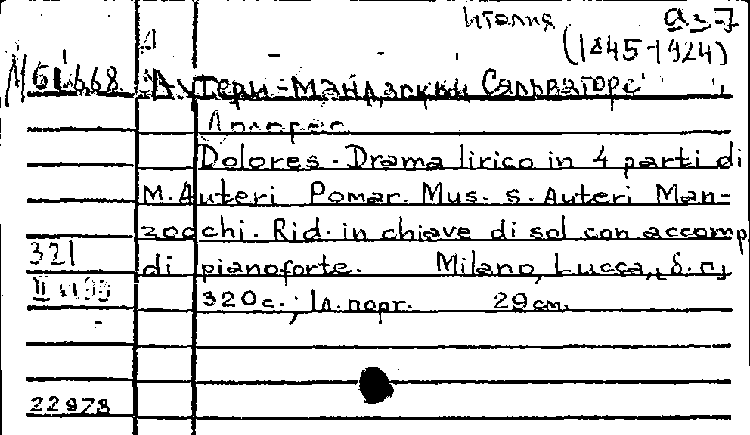 Италия а-7
(1845-1924)
М61668 Аутери-Мандзокки Сальваторе
Долорес
Dolores. Drama lirico in 4 parti di
M. Auteri Pomar. Mus. s. Auteri Man-
zocchi. Rid. in chiave di sol con accomp
321 di pianoforte. Milano, Lucca, б.г.,
320с.; 1л. портр. 29см.
22978